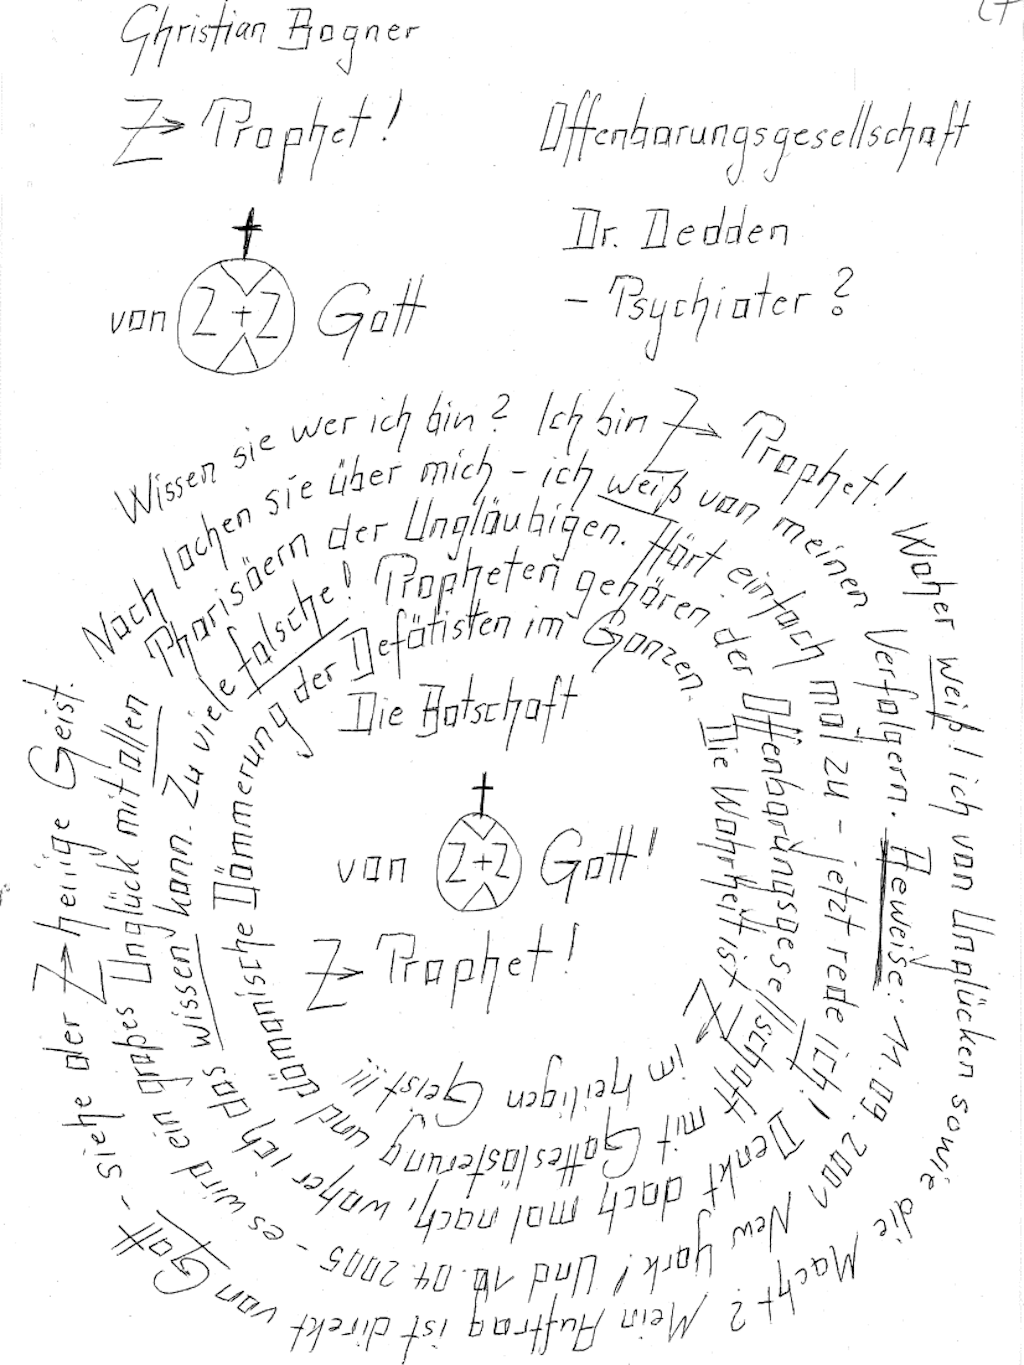 Christian Bogner
Z Prophet!
Offenbarungsgesellschaft
Dr. Dedden
- Psychiater ?
von 2+2 Gott
Wissen sie wer ich bin? Ich bin Z Prophet! Woher weiß ich von Unglücken sowie die Macht? Mein Auftrag ist direkt von Gott - siehe der Z heilige Geist.
Noch lachen sie über mich - ich weiß von meinen Verfolgern. Beweise: 11.09.2001 New York! Und 10.04.2005 - es wird ein großes Unglück mit allen
Pharisäern der Ungläubigen. Hört einfach mal zu - jetzt rede ich! Denkt doch mal nach, woher ich das wissen kann. Zu viele
falsche! Propheten gehören der Offenbarungsgesellschaft mit Gotteslästerung und dämonische Dämmerung
der Defätisten im Ganzen. Die Wahrheit ist Z im heiligen Geist!!!
Die Botschaft
von 2+2 Gott!
Z Prophet!